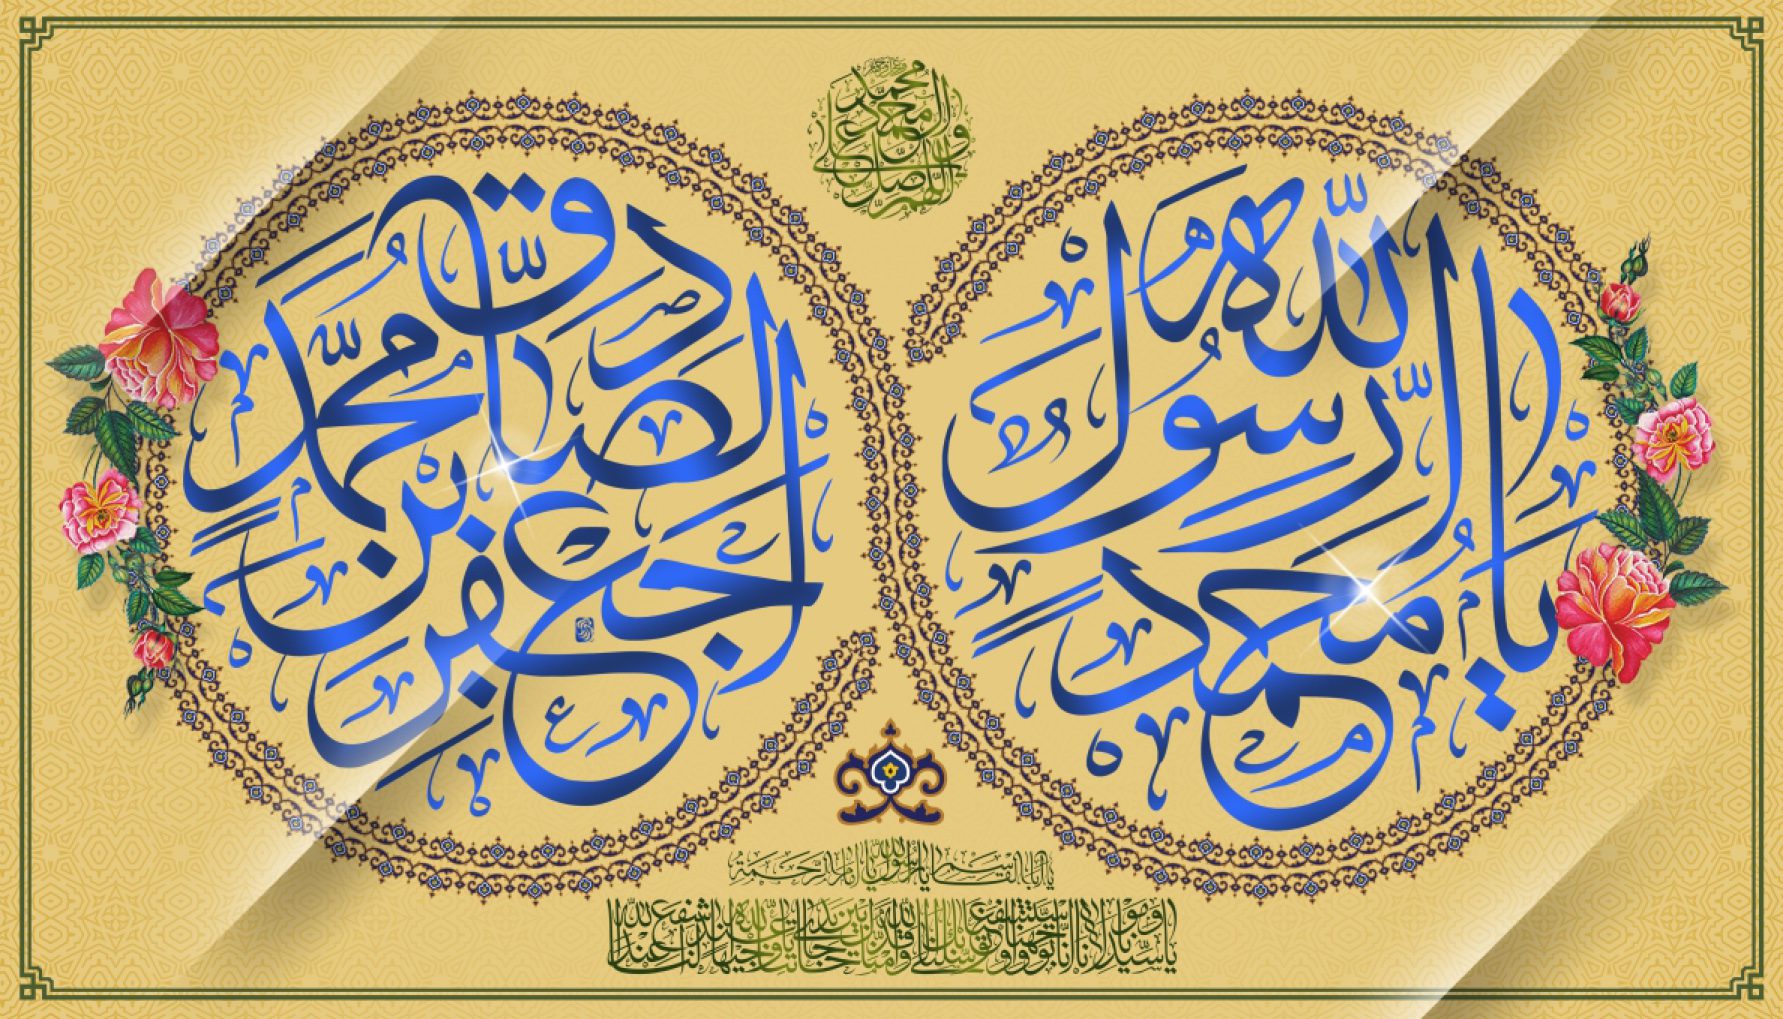 اللهم صل علی محمد وال محمد وعجل فرجهم
یا محمد الرسول الله
جعفر بن محمد الصادق
یا اباالقاسم یا رسول الله یا امام الرحمة
یا سیدنا و مولانا انا توجهنا و استشفعنا و توسلنا بک الی الله و قدمناک بین یدی حاجاتنا یا وجیها عند الله اشفع لنا عند الله